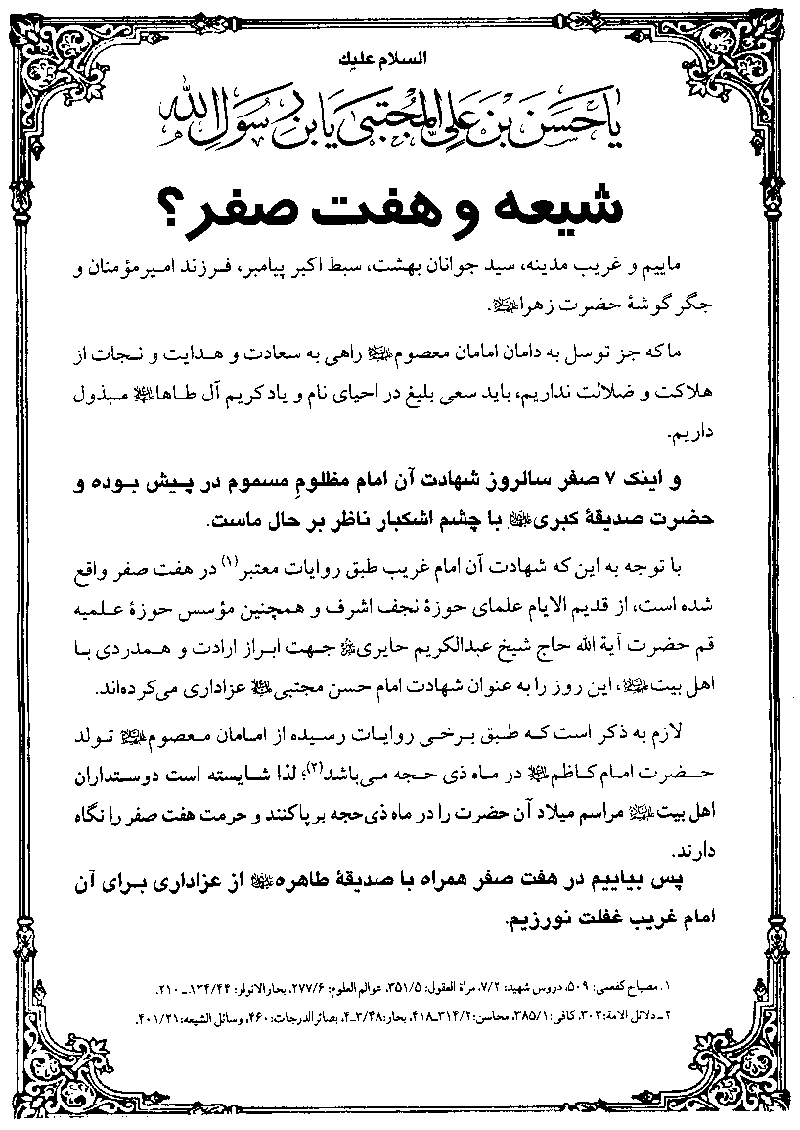 السلام علیك
یا حسن بن علی المجتبی یا بن رسول الله
شیعه و هفت صفر؟
ماییم و غریب مدینه، سید جوانان بهشت، سبط اکبر پیامبر، فرزند امیرمؤمنان و
جگرگوشۀ حضرت زهرا.
ما که جز توسل به دامان امامان معصوم راهی به سعادت و هدایت و نجات از
هلاکت و ضلالت نداریم، باید سعی بلیغ در احیای نام و یاد کریم آل طاها مبذول
داریم.
و اینک ۷ صفر سالروز شهادت آن امام مظلومِ مسموم در پیش بوده و
حضرت صدیقۀ کبری با چشم اشکبار ناظر بر حال ماست.
با توجه به این که شهادت آن امام غریب طبق روایات معتبر(۱) در هفت صفر واقع
شده است، از قدیم الایام علمای حوزۀ نجف اشرف و همچنین مؤسس حوزۀ علمیه
قم حضرت آیة الله حاج شیخ عبدالکریم حایری جهت ابراز ارادت و همدردی با
اهل بیت، این روز را به عنوان شهادت امام حسن مجتبی عزاداری می‌کرده‌اند.
لازم به ذکر است که طبق برخی روایات رسیده از امامان معصوم تولد
حضرت امام کاظم در ماه ذی حجه می‌باشد(۲)؛ لذا شایسته است دوستداران
اهل بیت مراسم میلاد آن حضرت را در ماه ذی‌حجه برپا کنند و حرمت هفت صفر را نگاه
دارند.
پس بیاییم در هفت صفر همراه با صدیقۀ طاهره از عزاداری برای آن
امام غریب غفلت نورزیم.
۱ . مصباح کفعمی: ۵۰۹، دروس شهید: ۷/۲، مرآة العقول: ۳۵۱/۵، عوالم العلوم: ۲۷۷/۶، بحارالانوار: ۱۳۴/۴۴ ـ ۲۱۰.
۲ ـ دلائل الامة: ۳۰۲، کافی: ۳۸۵/۱، محاسن: ۳۱۴/۲ـ۴۱۸، بحار: ۳/۴۸ـ۴، بصائرالدرجات: ۴۶۰، وسائل الشیعه: ۴۰۱/۲۱.